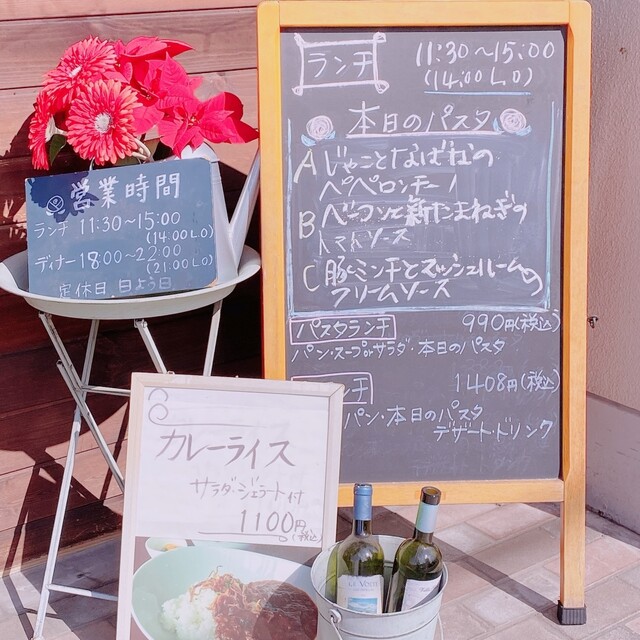 ランチ 11:30～15:00
(14:00 L.O)
本日のパスタ
A じゃことなばねの
ペペロンチーノ
B ベーコンと新たまねぎの
トマトソース
C 豚ミンチとマッシュルームの
クリームソース
パスタランチ 990円(税込)
パン・スープorサラダ・本日のパスタ
チ 1408円(税込)
パン・本日のパスタ
デザート・ドリンク
営業時間
ランチ 11:30～15:00
(14:00 L.O)
ディナー 18:00～22:00
(21:00 L.O)
定休日 日よう日
カレーライス
サラダ・ジェラート付
1100円
(税込)